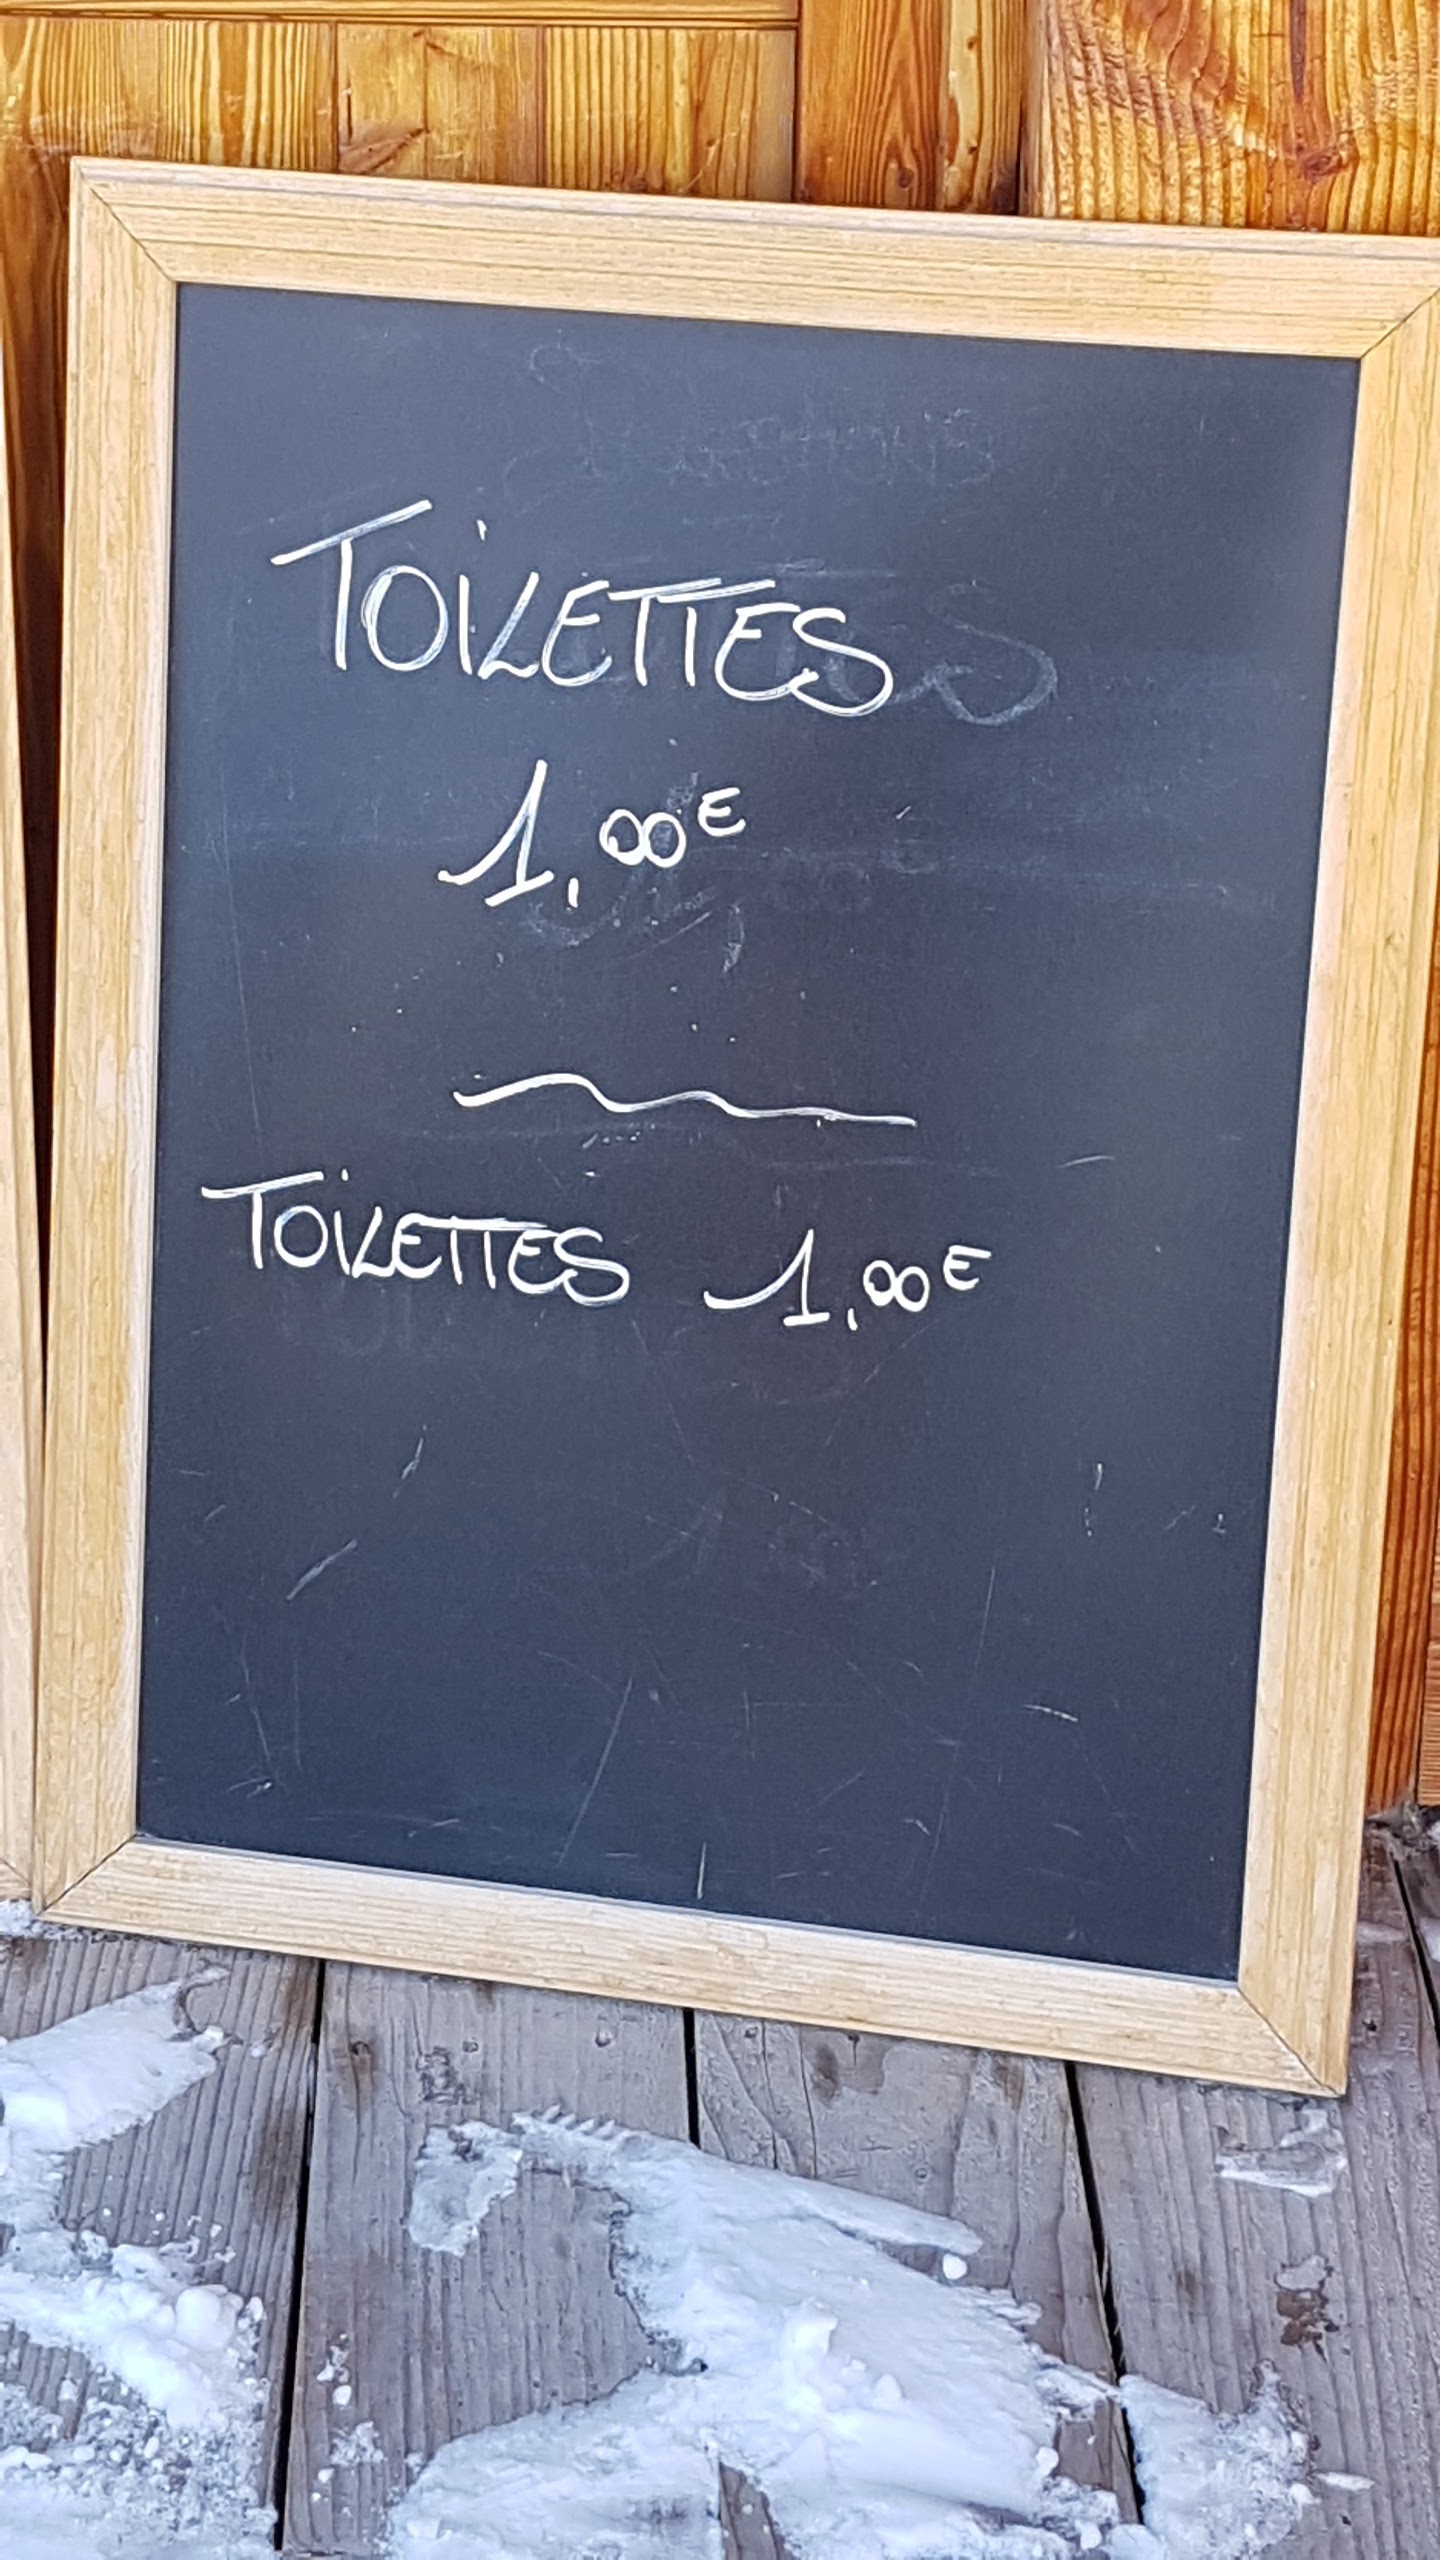 TOILETTES
1,00€
TOILETTES 1,00€